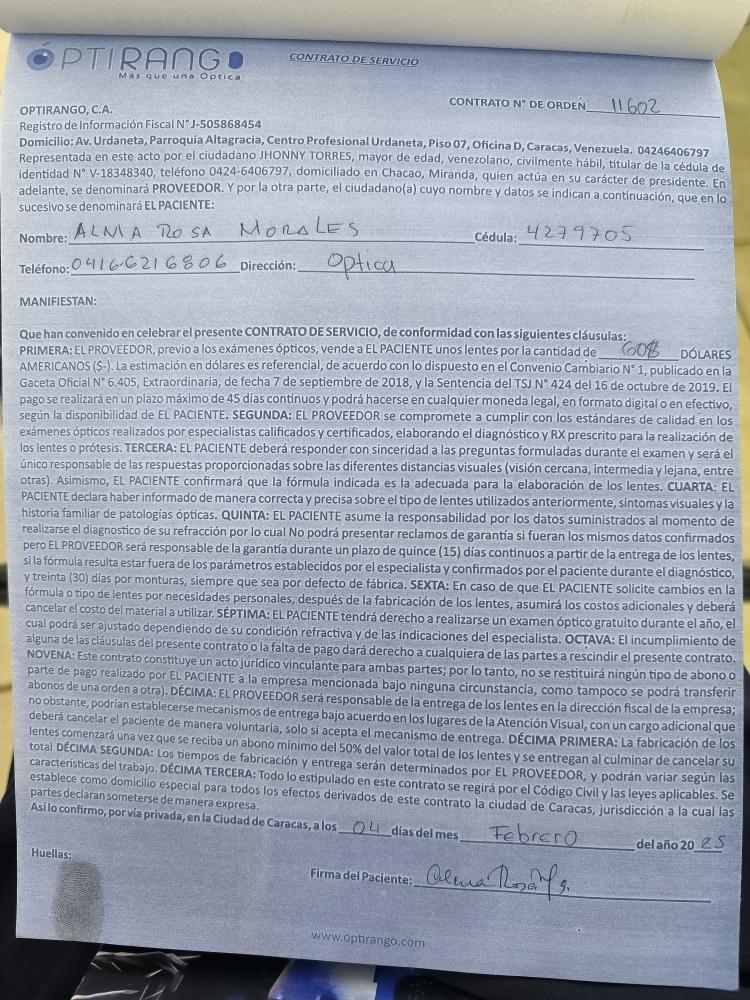 ÓPTIRANGO
Más que una Óptica
CONTRATO DE SERVICIO
CONTRATO N° DE ORDEN 11602
OPTIRANGO, C.A.
Registro de Información Fiscal N° J-505868454
Domicilio: Av. Urdaneta, Parroquia Altagracia, Centro Profesional Urdaneta, Piso 07, Oficina D, Caracas, Venezuela. 04246406797
Representada en este acto por el ciudadano JHONNY TORRES, mayor de edad, venezolano, civilmente hábil, titular de la cédula de
identidad N° V-18348340, teléfono 0424-6406797, domiciliado en Chacao, Miranda, quien actúa en su carácter de presidente. En
adelante, se denominará PROVEEDOR. Y por la otra parte, el ciudadano(a) cuyo nombre y datos se indican a continuación, que en lo
sucesivo se denominará EL PACIENTE:
Nombre: ALMA ROSA MORALES Cédula: 4279705
Teléfono: 04166216806 Dirección: Optica
MANIFIESTAN:
Que han convenido en celebrar el presente CONTRATO DE SERVICIO, de conformidad con las siguientes cláusulas:
PRIMERA: EL PROVEEDOR, previo a los exámenes ópticos, vende a EL PACIENTE unos lentes por la cantidad de 60$ DÓLARES
AMERICANOS ($-). La estimación en dólares es referencial, de acuerdo con lo dispuesto en el Convenio Cambiario N° 1, publicado en la
Gaceta Oficial N° 6.405, Extraordinaria, de fecha 7 de septiembre de 2018, y la Sentencia del TSJ N° 424 del 16 de octubre de 2019. El
pago se realizará en un plazo máximo de 45 días continuos y podrá hacerse en cualquier moneda legal, en formato digital o en efectivo,
según la disponibilidad de EL PACIENTE. SEGUNDA: EL PROVEEDOR se compromete a cumplir con los estándares de calidad en los
exámenes ópticos realizados por especialistas calificados y certificados, elaborando el diagnóstico y RX prescrito para la realización de
los lentes o prótesis. TERCERA: EL PACIENTE deberá responder con sinceridad a las preguntas formuladas durante el examen y será el
único responsable de las respuestas proporcionadas sobre las diferentes distancias visuales (visión cercana, intermedia y lejana, entre
otras). Asimismo, EL PACIENTE confirmará que la fórmula indicada es la adecuada para la elaboración de los lentes. CUARTA: EL
PACIENTE declara haber informado de manera correcta y precisa sobre el tipo de lentes utilizados anteriormente, síntomas visuales y la
historia familiar de patologías ópticas. QUINTA: EL PACIENTE asume la responsabilidad por los datos suministrados al momento de
realizarse el diagnostico de su refracción por lo cual No podrá presentar reclamos de garantía si fueran los mismos datos confirmados
pero EL PROVEEDOR será responsable de la garantía durante un plazo de quince (15) días continuos a partir de la entrega de los lentes,
si la fórmula resulta estar fuera de los parámetros establecidos por el especialista y confirmados por el paciente durante el diagnóstico,
y treinta (30) días por monturas, siempre que sea por defecto de fábrica. SEXTA: En caso de que EL PACIENTE solicite cambios en la
fórmula o tipo de lentes por necesidades personales, después de la fabricación de los lentes, asumirá los costos adicionales y deberá
cancelar el costo del material a utilizar. SÉPTIMA: EL PACIENTE tendrá derecho a realizarse un examen óptico gratuito durante el año, el
cual podrá ser ajustado dependiendo de su condición refractiva y de las indicaciones del especialista. OCTAVA: El incumplimiento de
alguna de las cláusulas del presente contrato o la falta de pago dará derecho a cualquiera de las partes a rescindir el presente contrato.
NOVENA: Este contrato constituye un acto jurídico vinculante para ambas partes; por lo tanto, no se restituirá ningún tipo de abono o
parte de pago realizado por EL PACIENTE a la empresa mencionada bajo ninguna circunstancia, como tampoco se podrá transferir
abonos de una orden a otra). DÉCIMA: EL PROVEEDOR será responsable de la entrega de los lentes en la dirección fiscal de la empresa;
no obstante, podrían establecerse mecanismos de entrega bajo acuerdo en los lugares de la Atención Visual, con un cargo adicional que
deberá cancelar el paciente de manera voluntaria, solo si acepta el mecanismo de entrega. DÉCIMA PRIMERA: La fabricación de los
lentes comenzará una vez que se reciba un abono mínimo del 50% del valor total de los lentes y se entregan al culminar de cancelar su
total DÉCIMA SEGUNDA: Los tiempos de fabricación y entrega serán determinados por EL PROVEEDOR, y podrán variar según las
características del trabajo. DÉCIMA TERCERA: Todo lo estipulado en este contrato se regirá por el Código Civil y las leyes aplicables. Se
establece como domicilio especial para todos los efectos derivados de este contrato la ciudad de Caracas, jurisdicción a la cual las
partes declaran someterse de manera expresa.
Así lo confirmo, por vía privada, en la Ciudad de Caracas, a los 04 días del mes Febrero del año 20 25
Huellas:
Firma del Paciente: Alma Rosa M
www.optirango.com